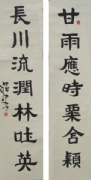 甘雨應時粟含穎
長川流潤林吐英